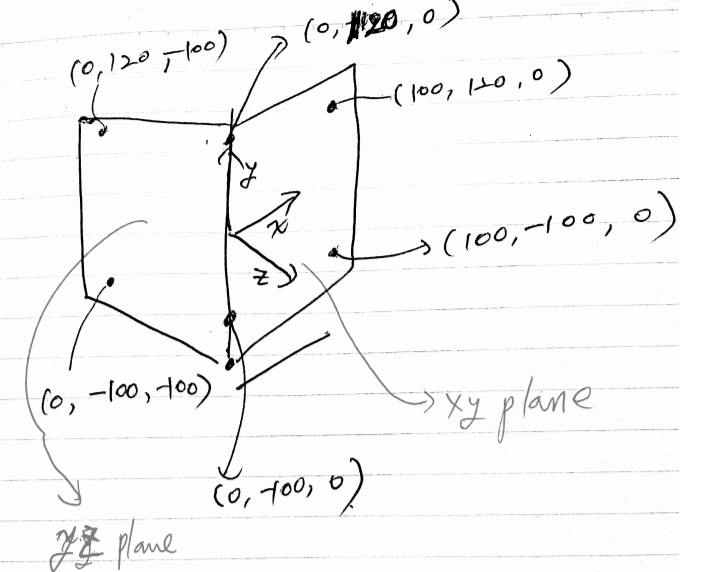 (0, 120, 0)
(0, 120, -100)
(100, 120, 0)
y
x
z
(100, -100, 0)
(0, -100, -100)
xy plane
(0, -100, 0)
yz plane